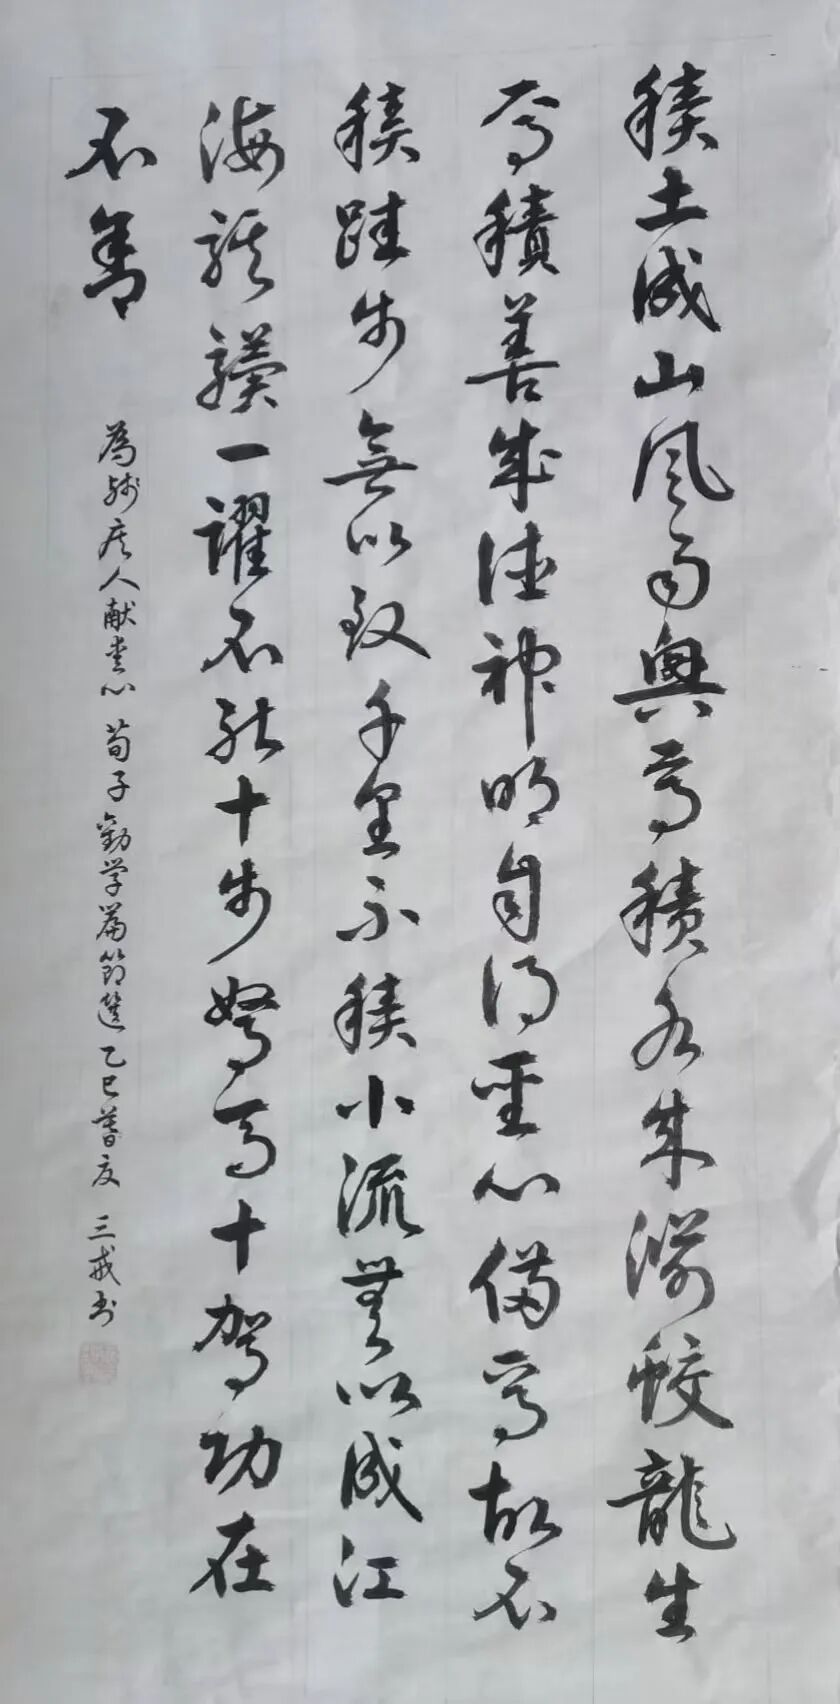 積土成山风雨興焉積水成渊蛟龍生
焉積善成德神明自得聖心備焉故不
積跬步無以致千里不積小流無以成江
海騏驥一躍不能十步駑馬十駕功在
不舍
為残疾人献爱心 荀子勸学篇節選 乙巳暮夏 三戒书